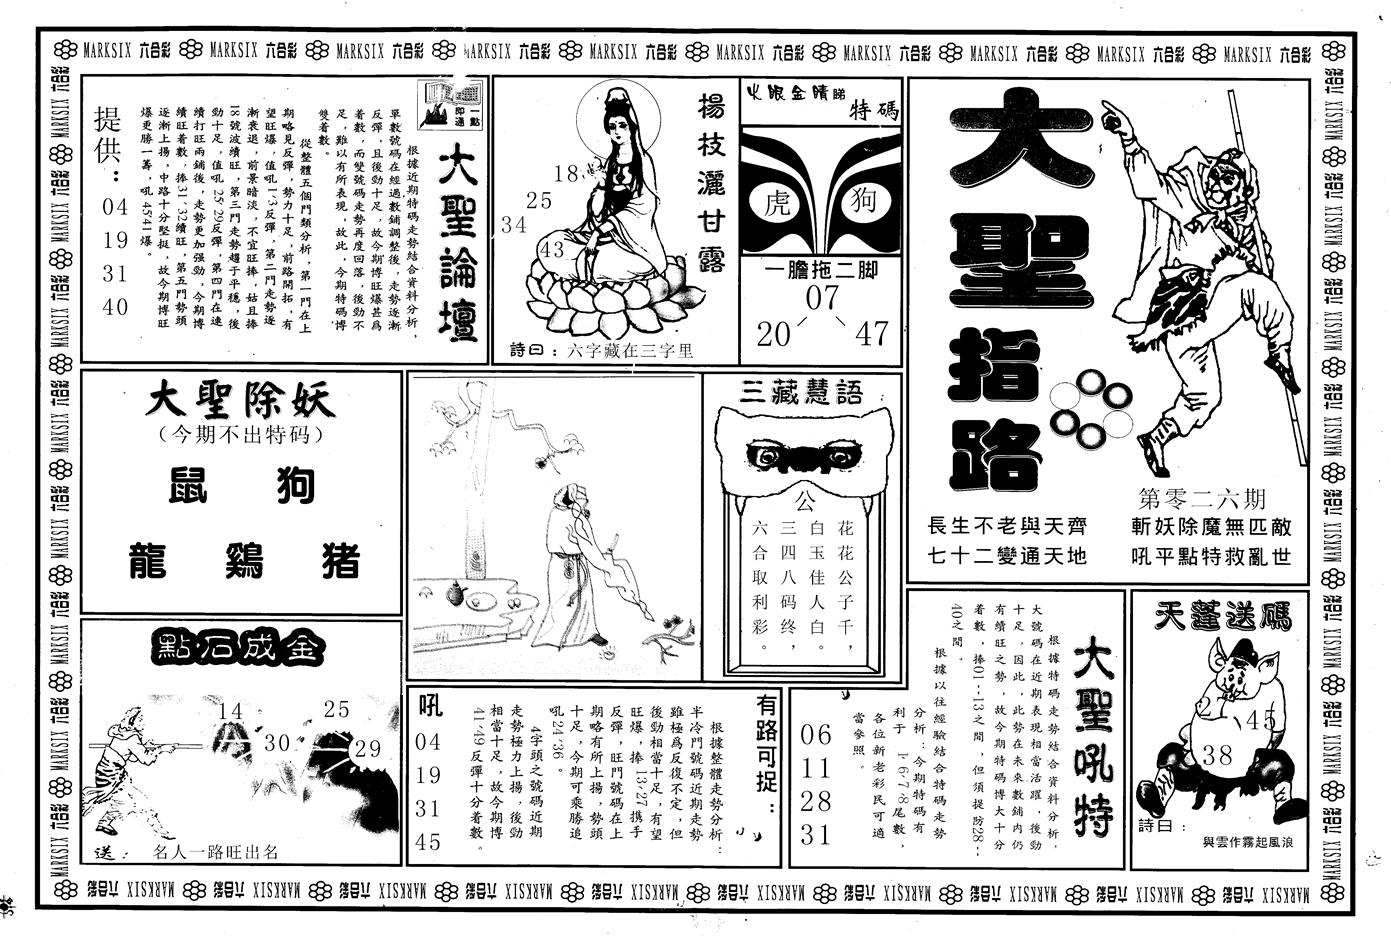 MARKSIX 六合彩 MARKSIX 六合彩 MARKSIX 六合彩 MARKSIX 六合彩 MARKSIX 六合彩 MARKSIX 六合彩 MARKSIX 六合彩 MARKSIX 六合彩 MARKSIX 六合彩 MARKSIX 六合彩
大聖指路
第零二六期
長生不老與天齊
七十二變通天地
斬妖除魔無匹敵
吼平點特救亂世
火眼金睛睇特碼
虎
狗
一膽拖二脚
07
20
47
楊枝灑甘露
18
25
34
43
詩曰：六字藏在三字里
一點即通
大聖論壇
根據近期特碼走勢結合資料分析，
單數號碼在經過數鋪調整後，走勢逐漸
反彈，且後勁十足，故今期博旺爆甚爲
着數，而雙號碼走勢再度回落，後勁不
足，難以有所表現，故此，今期特碼博
雙着數。
從整體五個門類分析，第一門在上
期略見反彈，勢力十足，前路開拓，有
望旺爆，值吼1·3反彈，第二門走勢逐
漸衰退，前景暗淡，不宜旺捧，姑且捧
18號波續旺，第三門走勢趨于平穩，後
勁十足，值吼25·29反彈，第四門在連
續打旺兩鋪後，走勢更加强勁，今期博
續旺着數，捧31·32續旺，第五門勢頭
逐漸上揚，中路十分堅挺，故今期博旺
爆更勝一籌，吼45·41爆。
提供：
04
19
31
40
大聖除妖
（今期不出特码）
鼠 狗
龍 鷄 猪
三藏慧語
公
花花公子千，
白玉佳人白。
三四八码终，
六合取利彩。
點石成金
14
25
30
29
送： 名人一路旺出名
有路可捉：
根據整體走勢分析：
半冷門號碼近期走勢
雖極爲反復不定，但
後勁相當十足，有望
旺爆，捧13·27携手
反彈，旺門號碼在上
期略有所上揚，勢頭
十足，今期可乘勝追
吼24·36。
4字頭之號碼近期
走勢極力上揚，後勁
相當十足，故今期博
41·49反彈十分着數。
吼
04
19
31
45
大聖吼特
根據特碼走勢結合資料分析，
大號碼在近期表現相當活躍，後勁
十足，因此，此勢在未來數鋪内仍
有續旺之勢，故今期特碼博大十分
着數，捧01--13之間，但須提防28--
40之間。
根據以往經驗結合特碼走勢
分析：今期特碼有
利于 1·6·7·8尾數，
各位新老彩民可適
當參照。
06
11
28
31
天蓬送碼
45
38
詩曰：
與雲作霧起風浪